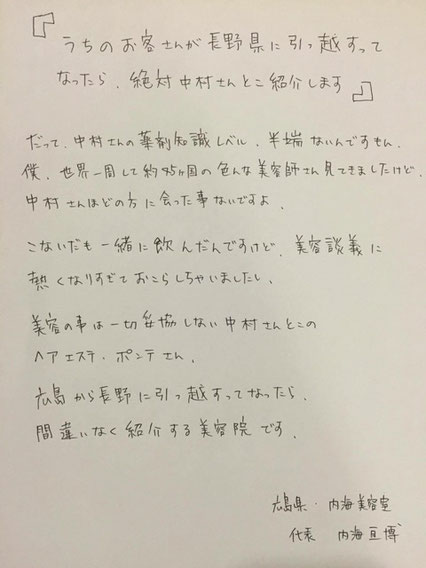 『うちのお客さんが長野県に引っ越すって
なったら、絶対中村さんとこ紹介します』
だって、中村さんの薬剤知識レベル、半端ないんですもん。
僕、世界一周して約45ヵ国の色んな美容師さん見てきましたけど、
中村さんほどの方に会った事ないですよ。
こないだも一緒に飲んだんですけど、美容談義に
熱くなりすぎておこらしちゃいましたし、
美容の事は一切妥協しない中村さんとこの
ヘアエステ・ポンテさん。
広島から長野に引っ越すってなったら、
間違いなく紹介する美容院です。
広島県・内海美容室
代表 内海亘博